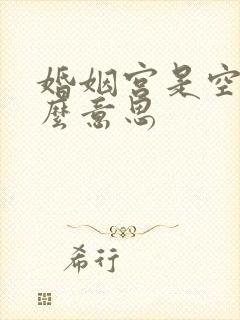 婚姻宫是空
麼意思
希行